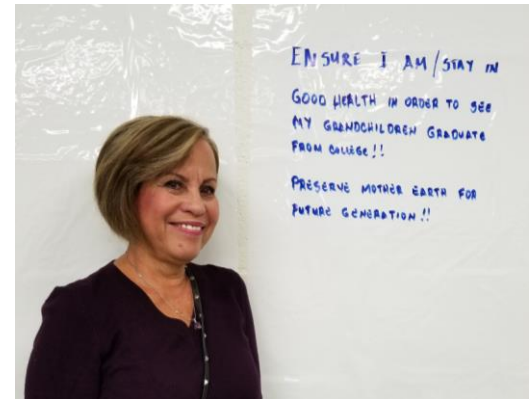 ENSURE I AM/STAY IN
GOOD HEALTH IN ORDER TO SEE
MY GRANDCHILDREN GRADUATE
FROM COLLEGE!!
PRESERVE MOTHER EARTH FOR
FUTURE GENERATION!!